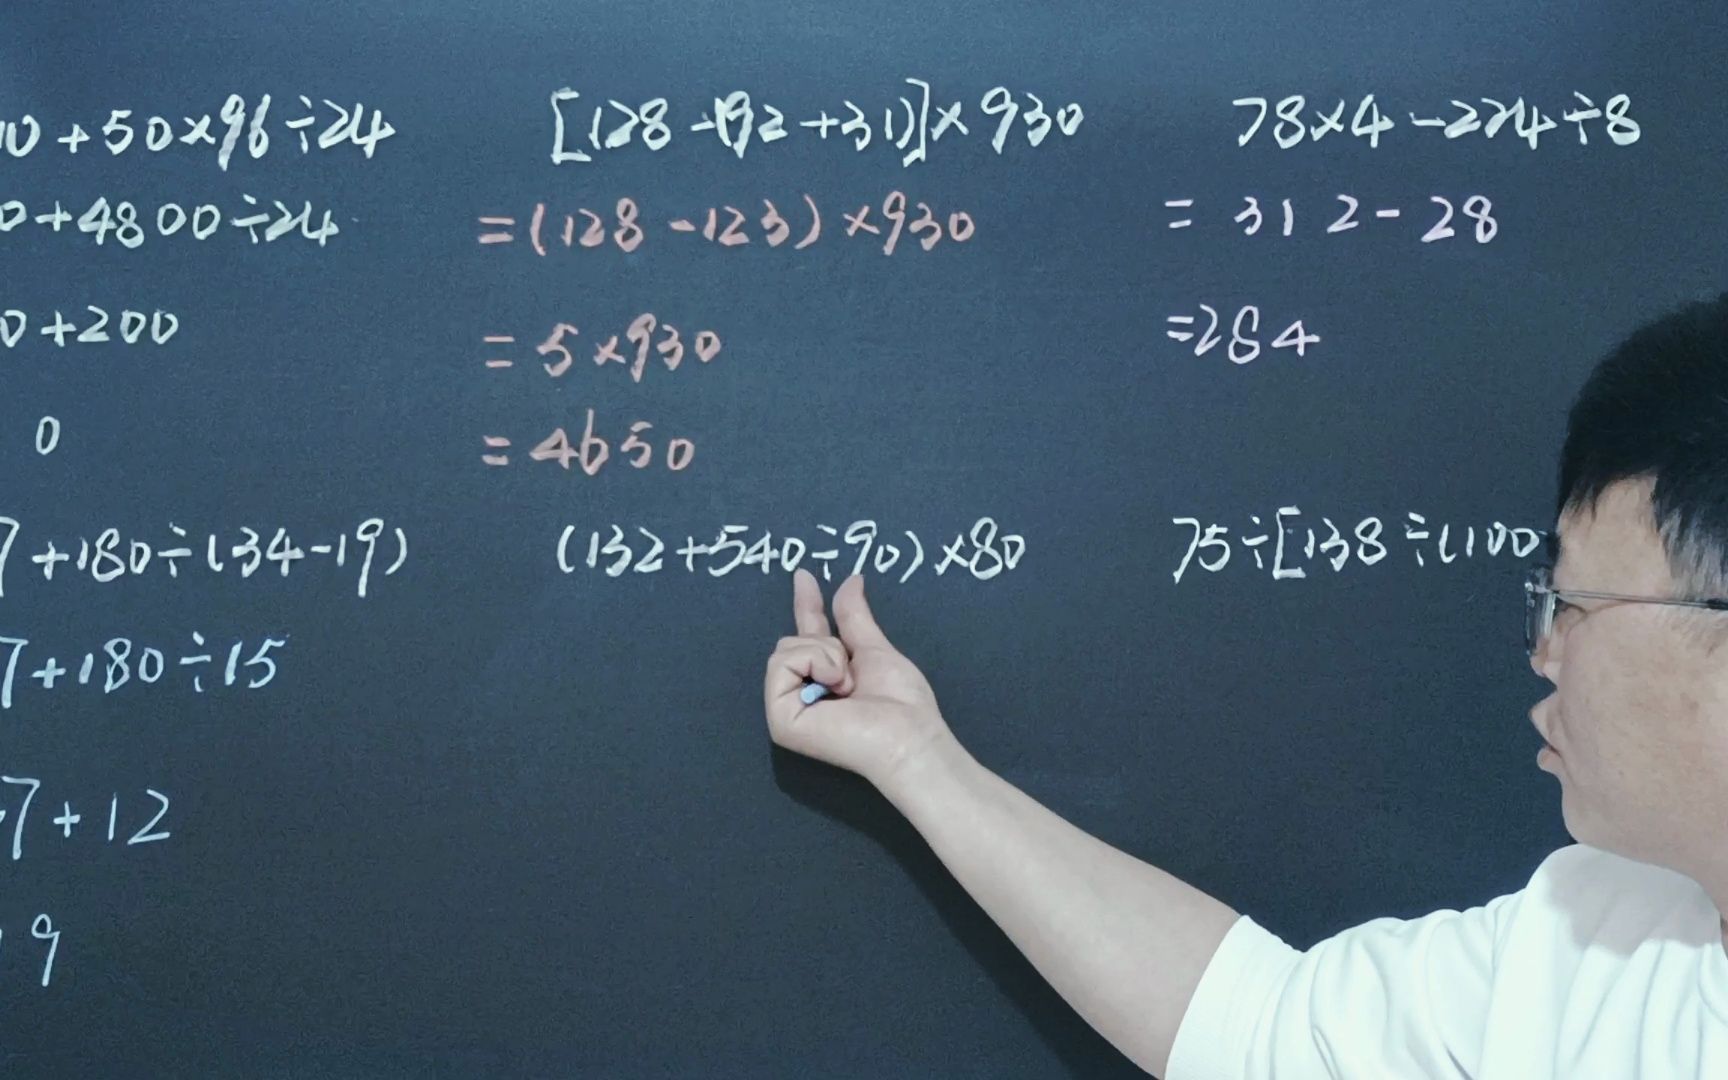 10+50×96÷24
0+4800÷24
0+200
0
[128-(92+31)]×930
=(128-123)×930
=5×930
=4650
78×4-224÷8
=312-28
=284
7+180÷(34-19)
7+180÷15
7+12
9
(132+540÷90)×80
75÷[138÷(100